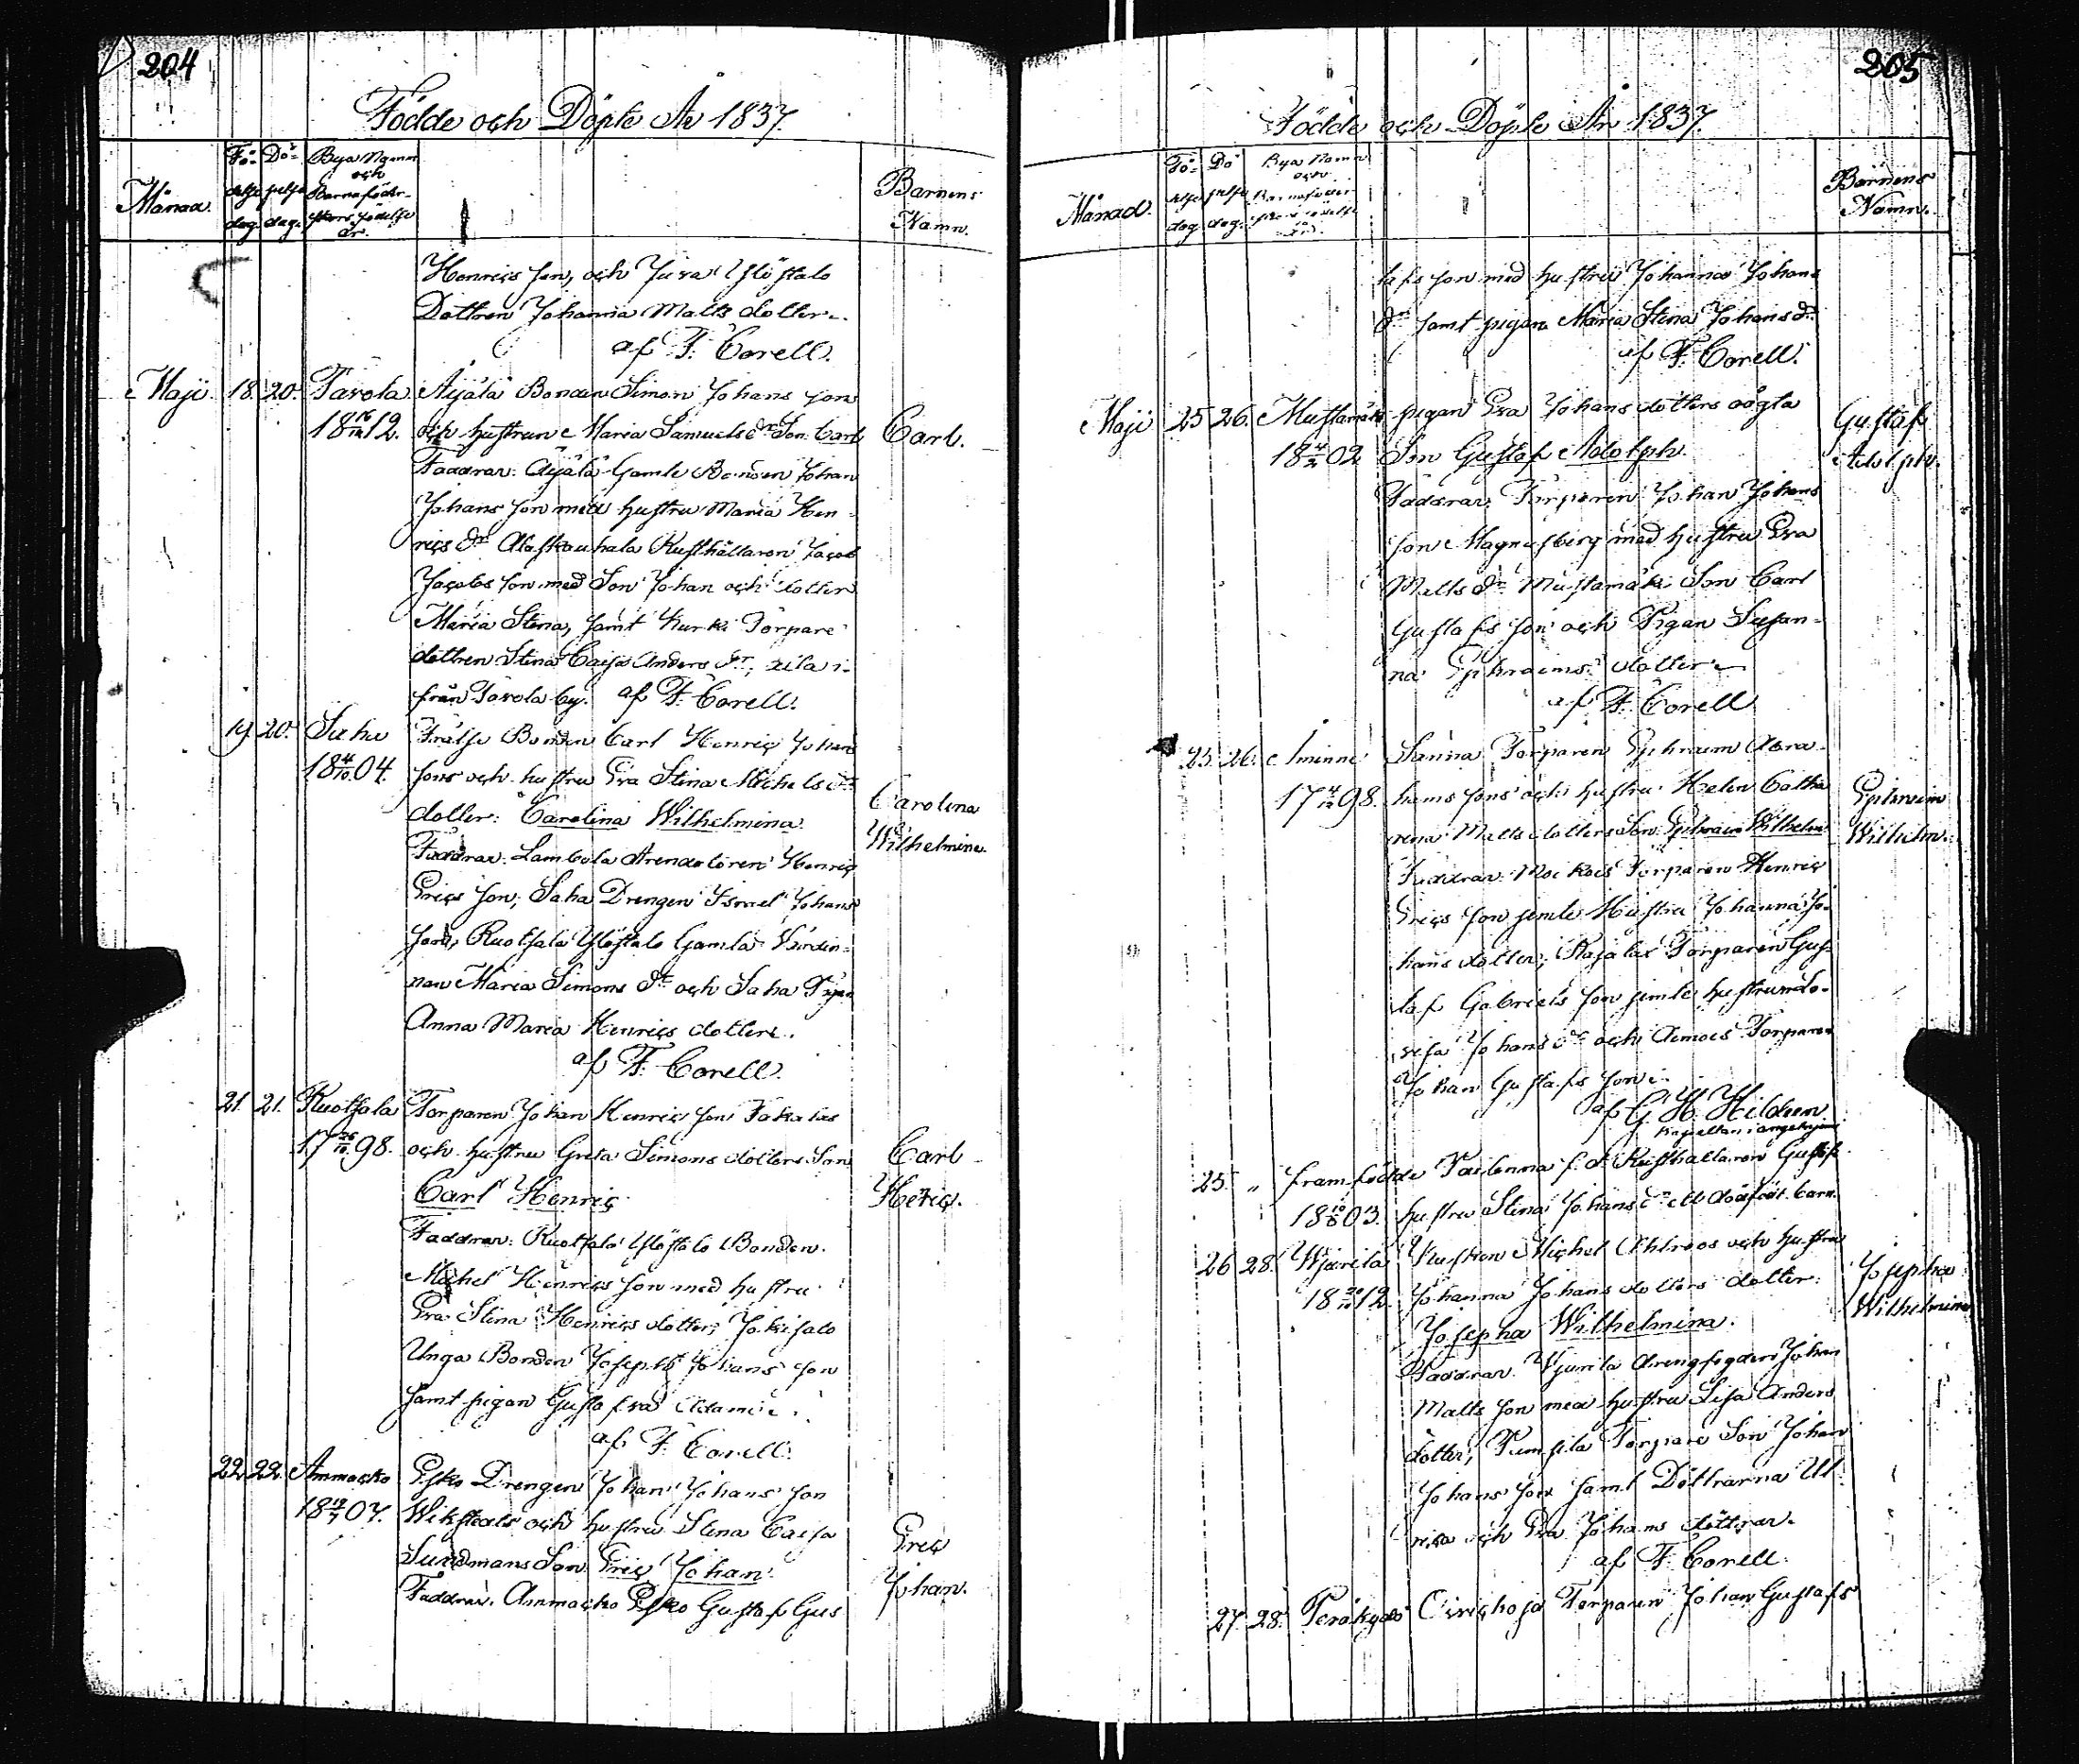 204
Födde och Döpte År 1837.
Månad.
Fö-
delse
dag.
Dö-
pelse
dag.
Bya Namn
och
Barnaföder-
skans födelse
år.
Barnens
Namn.
Henrics son, och Ylöstalo
Dottren Johanna Matts dotter.
af F. Corell.
Maji 18. 20. Tarola Äijälä Bonden Simon Johans son
18 12. och hustrun Maria Samuels dr Son Carl Carl.
Faddrar: Äijälä Gamle Bonden Johan
Johans son med hustru Maria Hen-
rics dr Alaskouhala Rusthållaren Jacob
Jacobs son med Son Johan och dotter
Maria Stena, samt Kurki Torpare
dottren Stena Caisa Anders dr,
från Tarola by. af F. Corell.
19. 20. Saha Frälse Bonden Carl Henric Johans
18 4/10 04. sons och hustru Eva Stina Michels dr
dotter: Carolina Wilhelmina. Carolina
Wilhelmina.
Faddrar: Lambola Arendatoren Henric
Erics son, Saha Drengen Israel Johans
son, Ruotsala Ylöstalo Gamla Värdin-
nan Maria Simons dr och Saha Pigan
Anna Maria Henrics dotter.
af F. Corell.
21. 21. Ruotsala Torparen Johan Henrics son
17 98. och hustru Greta Simons dotters Son Carl
Carl Henric Henric.
Faddrar: Ruotsala Ylöstalo Bonden
Michel Henrics son med hustru
Eva Stina Henrics dotter, Jokisalo
Unga Bonden Joseph Johans son
samt pigan Gustafva Adams
af F. Corell.
22 22. Ammacko Esko Drengen Johan Johans son
18 07. Wikstedts och hustru Stena Caisa Eric
Sundmans Son Eric Johan. Johan.
Faddrar. Ammacko Esko Gustaf Gus
205
Födde och Döpte År 1837.
Månad.
Fö-
delse
dag.
Dö
pelse
dag.
Bya Namn
och
Barnaföder
skans födelse
år.
Barnens
Namn.
tafs son med hustru Johanna Johans
dr samt pigan Maria Stena Johans dr.
af F. Corell.
Maji 25 26. Mustamäki pigan Eva Johans dotters oägta Gustaf
18 02 Son Gustaf Adolph. Adolph.
Faddrar: Torparen Johan Johans
son Magnusberg med hustru Eva
Matts dr Mustamäki Son Carl
Gustafs son och Pigan Susan-
na Ephraims dotter
af F. Corell
25. 26. Sanna Torparen Ephraim Abra-
17 98. hams sons och hustru Helen Catha Ephraim
rina Matts dotters Son Ephraim Wilhelm Wilhelm.
Faddrar: Torparen Henric
Erics son jemte Hustru Johanna Jo-
hans dotter; Rajala Torparen Gus-
taf Gabriels son jemte hustrun Lo-
visa Johans dr och Torparen
Johan Gustafs son
af G. H. Hildeen
Kapellan i
25. " framfödde f. d. Rusthållaren Gustaf
18 03. hustru Stina Johans dr ett dödfödt barn.
26 28. Wjarila Kusken Michel Ahlroos och hustru Josepha
18 12. Johanna Johans dotters dotter: Wilhelmina
Josepha Wilhelmina.
Faddrar. Wjurila Johan
Matts son med hustru Lisa Anders
dotter, Pumpila Torpare Son Johan
Johans son samt Döttrarna Ul-
rica och Eva Johans döttrar.
af F. Corell.
27. 28. Torparen Johan Gustafs